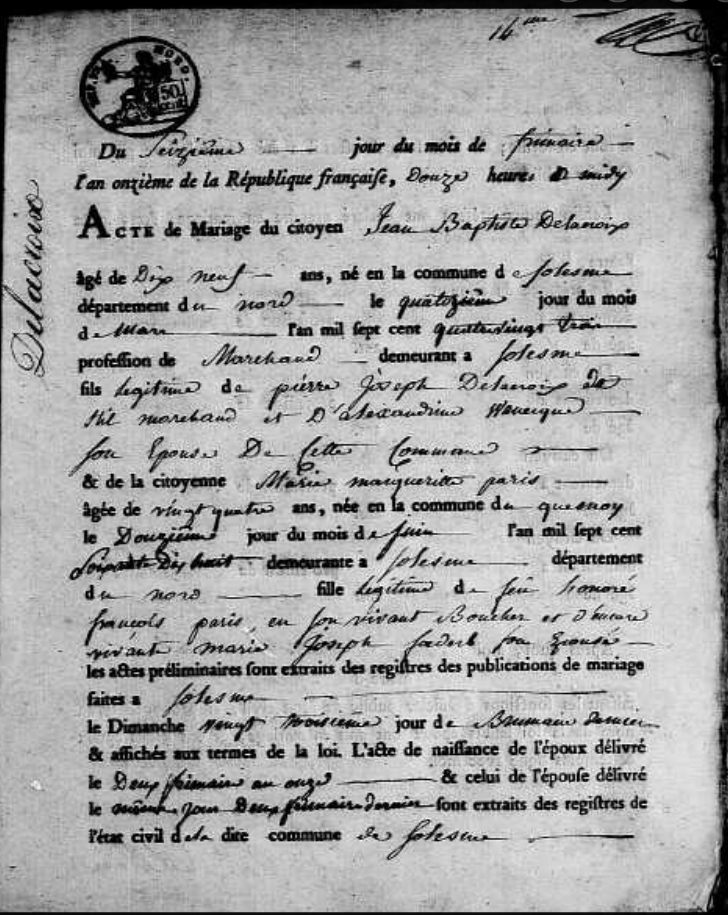 14me
NORD.
50
Delacroix
Du Seizième jour du mois de frimaire
l'an onzième de la République françaiſe, Douze heures à midy
ACTE de Mariage du citoyen Jean Baptiste Delacroix
âgé de Dix neuf ans, né en la commune de Solesme
département du nord le quatozième jour du mois
de Mars l'an mil ſept cent quatrevingt trois
profeſſion de Marchand demeurant a Solesme
fils legitime de pierre Joseph Delacroix
marchand et D'alexandrine
son Epouse De Cette Commune
& de la citoyenne Marie margueritte paris
âgée de vingt quatre ans, née en la commune du quesnoy
le Douzième jour du mois de Juin l'an mil ſept cent
Soixante Dix huit demeurante a Solesme département
du nord fille legitime de feu honoré
françois paris, en son vivant Boucher et d'encore
vivante marie Joseph son Epouse
les actes préliminaires ſont extraits des regiſtres des publications de mariage
faites a Solesme
le Dimanche vingt troisieme jour de Brumaire dernier
& affichés aux termes de la loi. L'acte de naiſſance de l'époux délivré
le Deux frimaire an onze & celui de l'épouſe délivré
le même jour Deux frimaire dernier ſont extraits des regiſtres de
l'état civil de la dite commune de Solesme